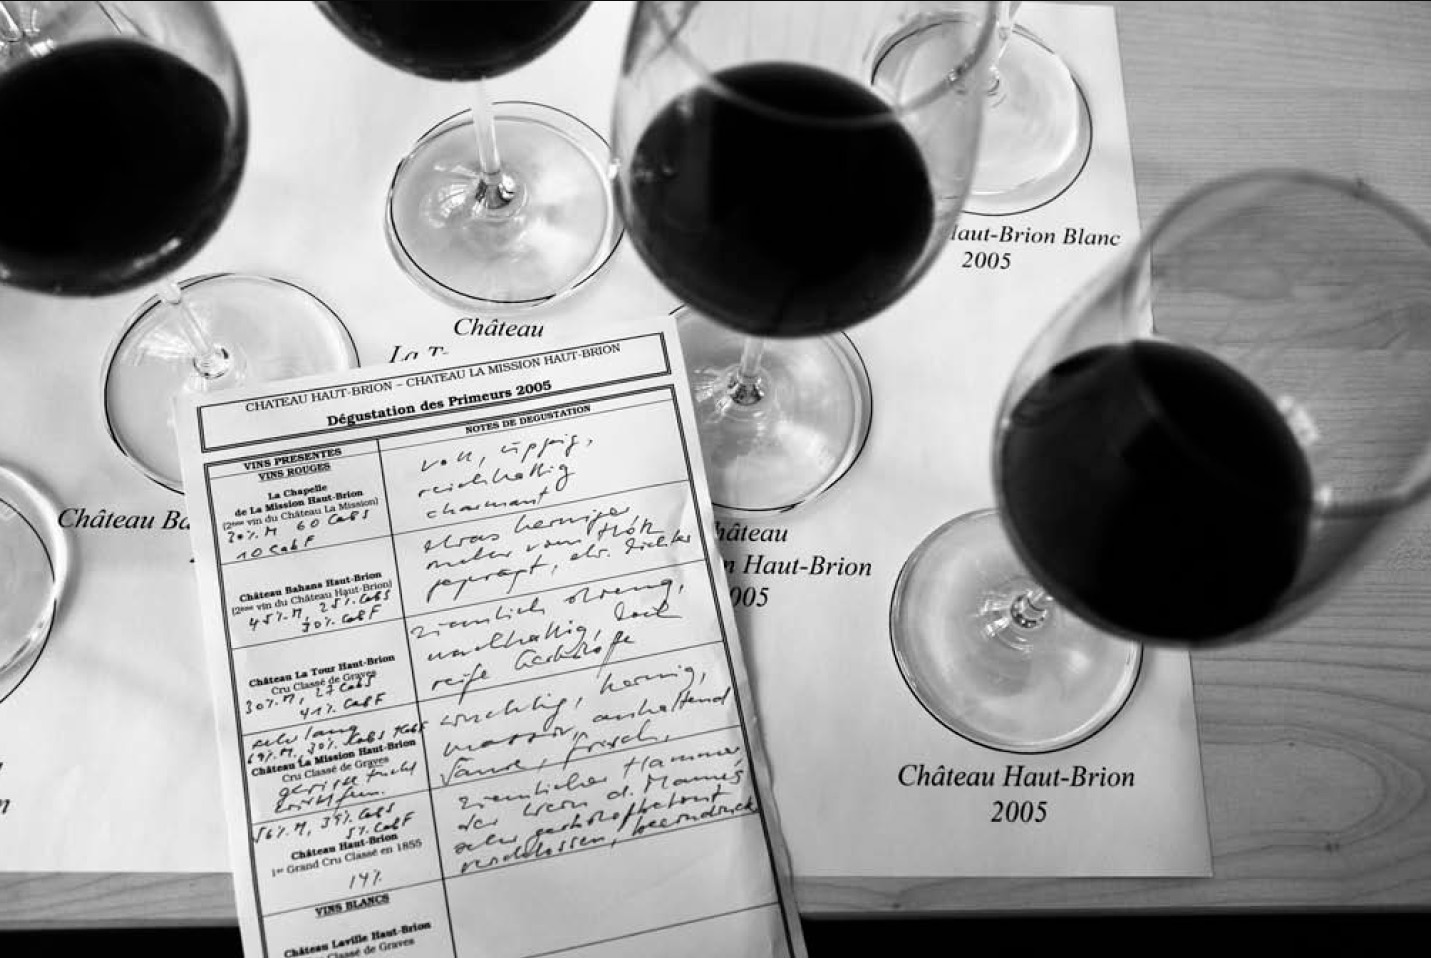 Haut-Brion Blanc
2005
Château
La T
CHATEAU HAUT-BRION – CHATEAU LA MISSION HAUT-BRION
Dégustation des Primeurs 2005
VINS PRESENTES
NOTES DE DEGUSTATION
VINS ROUGES
La Chapelle
de La Mission Haut-Brion
(2ème vin du Château La Mission)
30% M 60 CabS
10 Cab F
voll, üppig,
reichhaltig
charmant
Château Bahans Haut-Brion
(2ème vin du Château Haut-Brion)
45% M, 25% CabS
30% Cab F
etwas herniger
mehr vom Holz
geprägt, etw. dichter
Château La Tour Haut-Brion
Cru Classé de Graves
30% M, 27 CabS
41% Cab F
ziemlich streng,
nachhaltig,
reife Gerbstoffe
sehr lang
69% M, 30% CabS
Château La Mission Haut-Brion
Cru Classé de Graves
wuchtig, hernig,
massiv, anhaltend
Säure, frisch,
56% M, 39% CabS
5% Cab F
Château Haut-Brion
1er Grand Cru Classé en 1855
14%
ziemlicher Hammer
der Wein d.
sehr gerbstoffbetont
verschlossen, beeindruck
VINS BLANCS
Château Laville Haut-Brion
Classé de Graves
Château Ba
hâteau
n Haut-Brion
005
Château Haut-Brion
2005